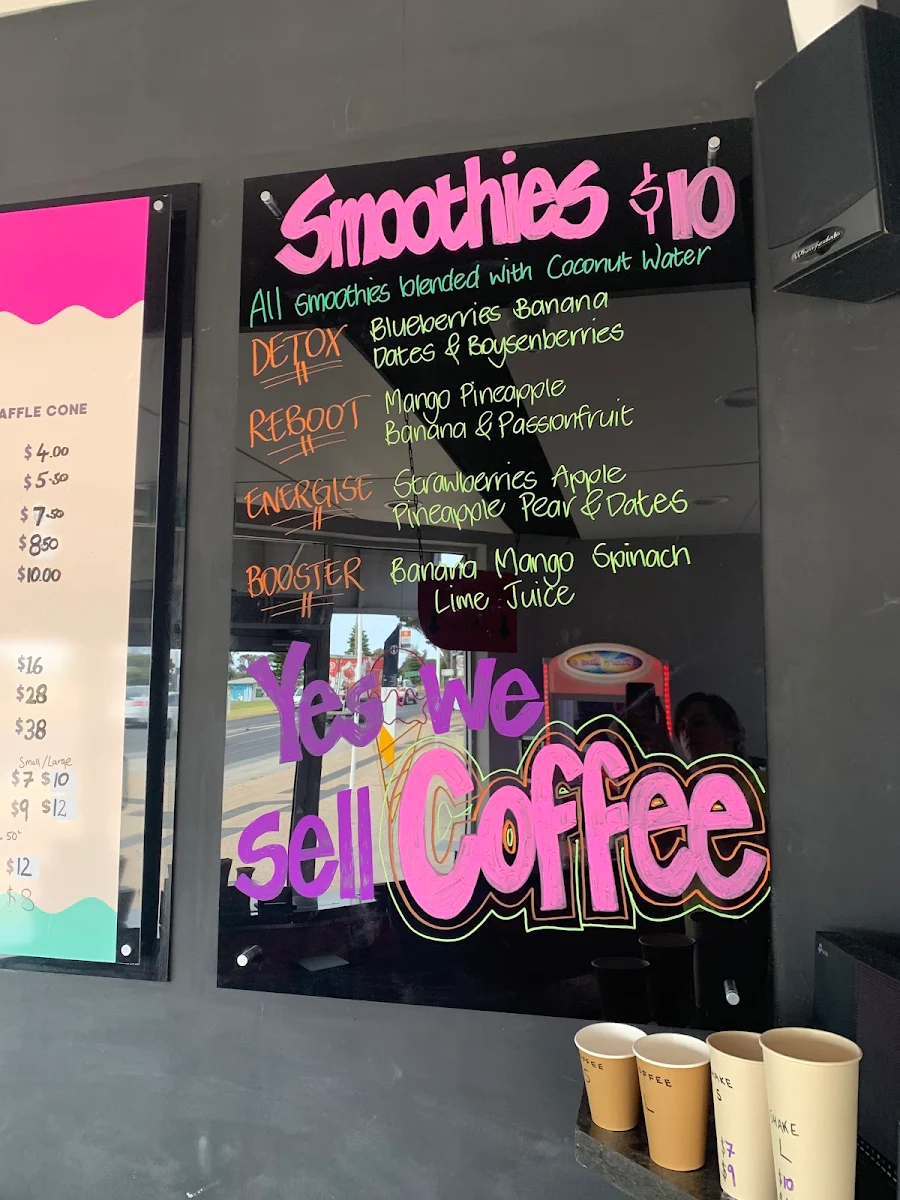 AFFLE CONE
$4.00
$5.50
$7.50
$8.50
$10.00
$16
$28
$38
Small/Large
$7 $10
$9 $12
.50"
$12
$8
Smoothies $10
All smoothies blended with Coconut Water
DETOX Blueberries Banana
Dates & Boysenberries
REBOOT Mango Pineapple
Banana & Passionfruit
ENERGISE Strawberries Apple
Pineapple Pear & Dates
BOOSTER Banana Mango Spinach
Lime Juice
Yes we
sell Coffee
Wharfedale
FFEE
S
FFEE
L
AKE
S
$7
$9
SHAKE
L
$10